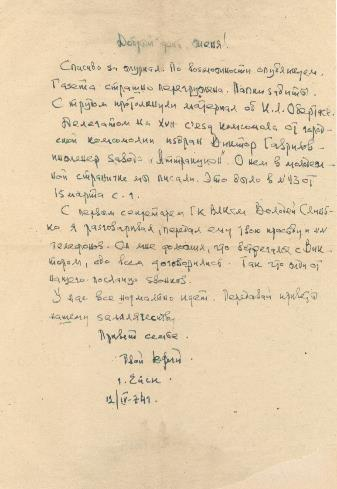 Добрый день, Женя!
Спасибо за журнал. По возможности опубликуем.
Газета страшно перегружена. Папки забиты.
С трудом протолкнули материал об К.Л.
Делегатом на XVII съезд комсомола от город-
ской комсомолии избран Виктор Гаврилов
инженер завода "Аттракцион". О нем в молодеж-
ной странице мы писали. Это было в №43 от
15 марта с. г.
С первым секретарем ГК ВЛКСМ Володей
я разговаривал, передал ему твою просьбу и №№
телефонов. Он мне доложил, что встречался с Вик-
тором, обо всем договорились. Так что жди от
нашего посланца звонков.
У нас все нормально идет. Передавай приветы
нашему землячеству.
Привет семье.
Твой Юрий.
г. Ейск
12/IV-74г.